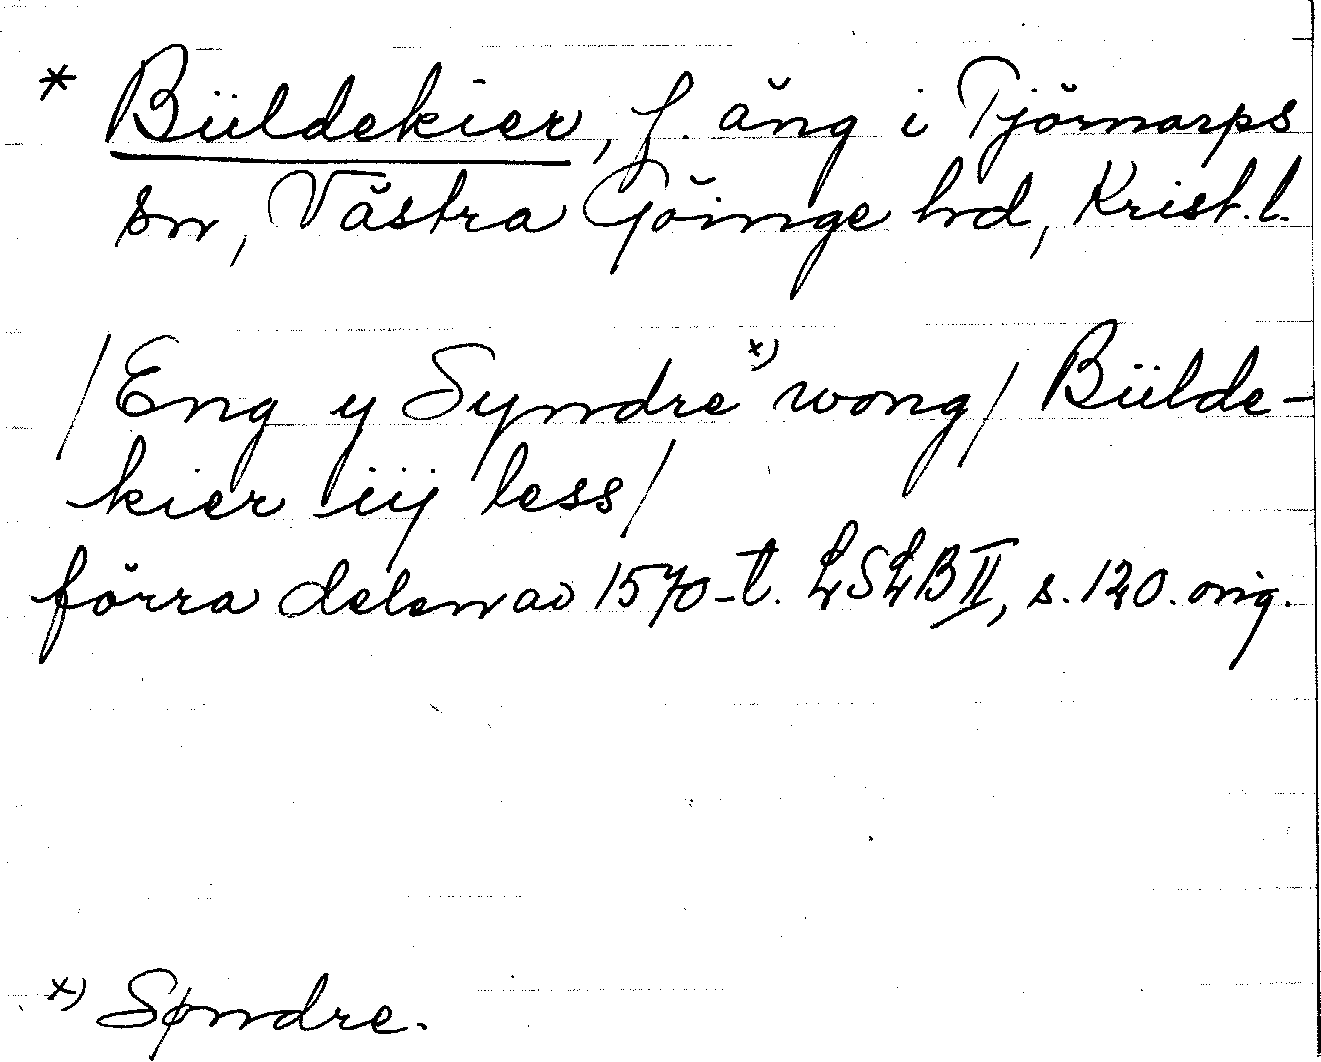 * Büldekier, f. äng i Tjörnarps
sn, Västra Göinge hd, Krist. l.
/Eng y Syndre x) wong/ Bülde-
kier iij less/
förra delen av 1570-t. LSLB II, s. 120. orig.
x) Søndre.